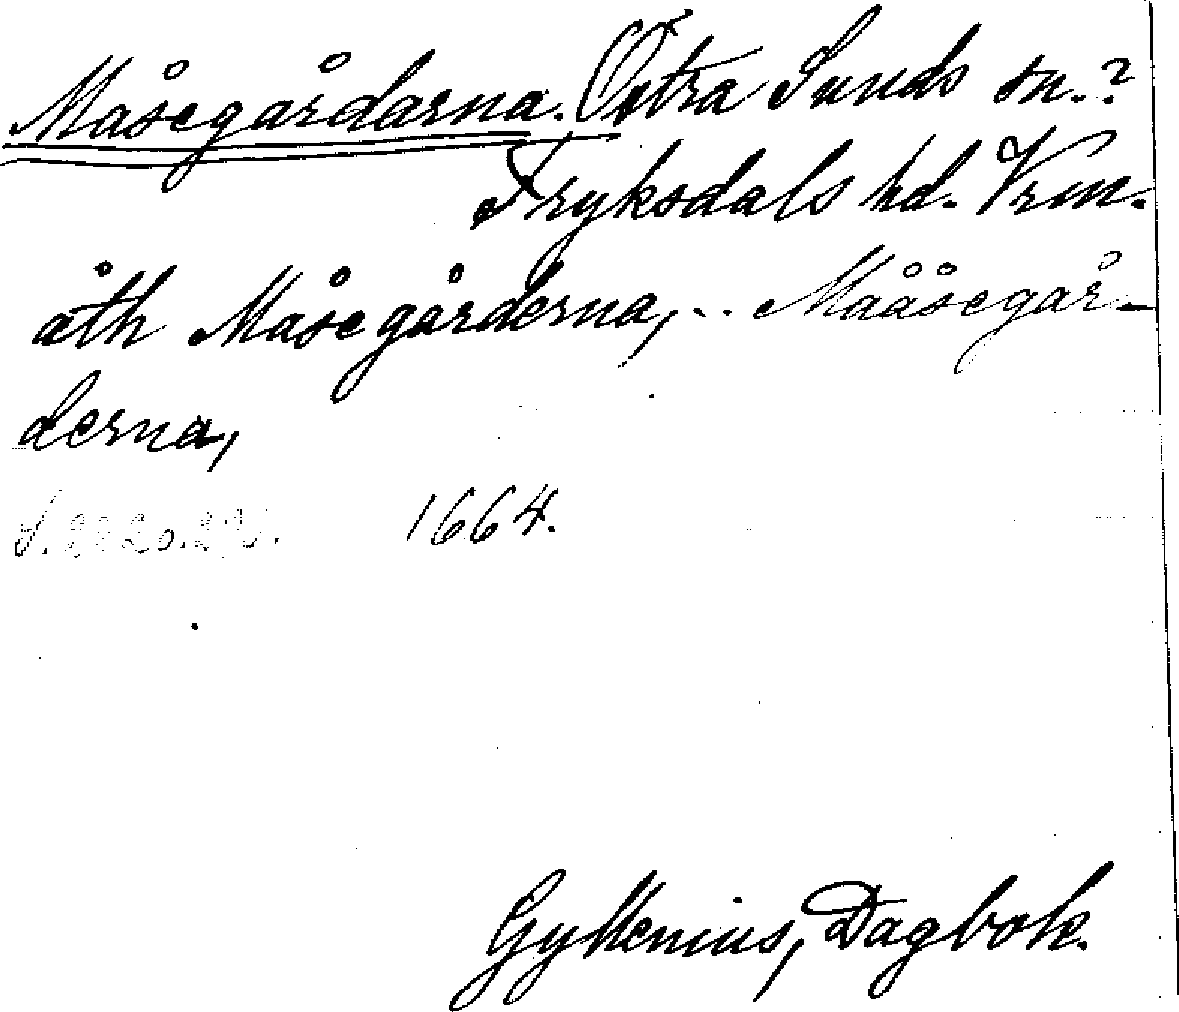 Måsegårdarna. Östra Sunds sn.?
Fryksdals hd. Vrm.
åth Måsegårderna, .. Mååsegår-
derna,
1664.
Gyllenius, Dagbok.